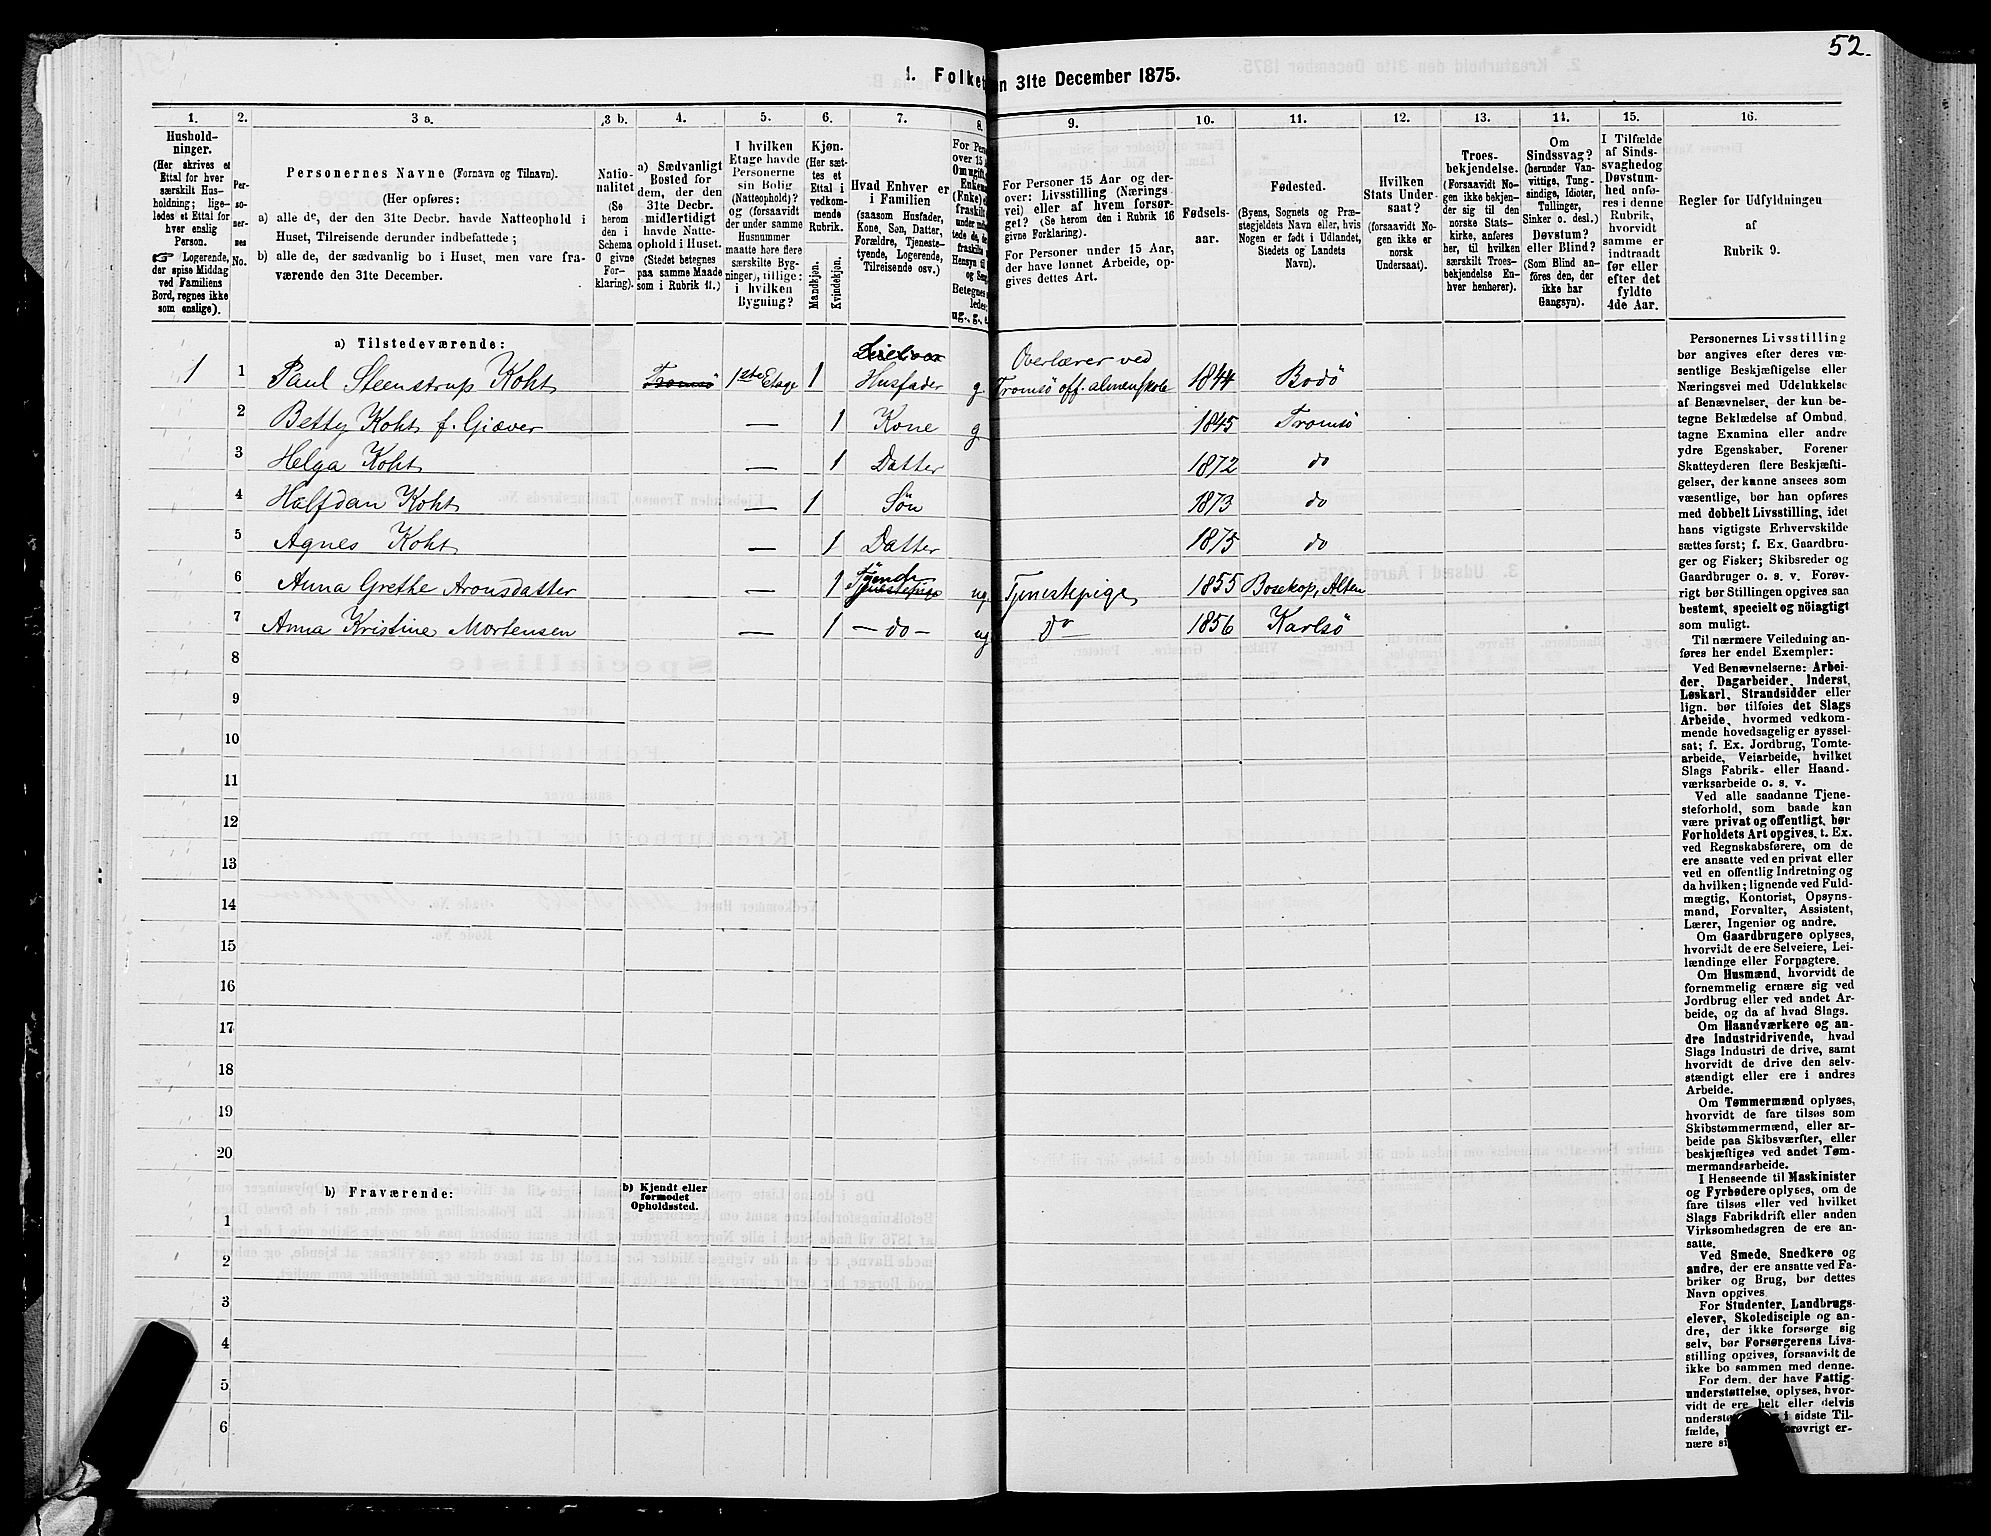 52.
1. Folket
n 31te December 1875.
1.
2.
3 a.
3 b.
4.
5.
6.
7.
8.
9.
10.
11.
12.
13.
14.
15.
16.
Hushold-
ninger.
(Her skrives et
Ettal for hver
særskilt Hus-
holdning; lige-
ledes et Ettal for
hver enslig
Person.
☞ Logerende,
der spise Middag
ved Familiens
Bord, regnes ikke
som enslige).
Per-
so-
ner-
nes
No.
Personernes Navne (Fornavn og Tilnavn).
(Her opføres:
a) alle de, der den 31te Decbr. havde Natteophold i
Huset, Tilreisende derunder indbefattede;
b) alle de, der sædvanlig bo i Huset, men vare fra-
værende den 31te December.
Natio-
nalitet
(Se
herom
den i
Schema
O givne
For-
klaring).
a) Sædvanligt
Bosted for
dem, der den
31te Decbr.
midlertidigt
havde Natte-
ophold i Huset.
(Stedet betegnes
paa samme Maade
som i Rubrik 11.)
I hvilken
Etage havde
Personerne
sin Bolig
(Natteophold)?
og (forsaavidt
der under samme
Husnummer
maatte høre flere
særskilte Byg-
ninger), tillige:
i hvilken
Bygning?
Kjøn.
(Her sæt-
tes et
Ettal i
vedkom-
mende
Rubrik.
Mandkjøn.
Kvindekjøn.
Hvad Enhver er
i Familien
(saasom Husfader,
Kone, Søn, Datter,
Forældre, Tjeneste-
tyende, Logerende,
Tilreisende osv.)
For Pers
over 15
Om ugift,
Enkem
(Enke) e
fraskilt
For Personer 15 Aar og der-
over: Livsstilling (Nærings
vei) eller af hvem forsør-
get? (Se herom den i Rubrik 16
givne Forklaring).
For Personer under 15 Aar,
der have lønnet Arbeide, op-
gives dettes Art.
Fødsels-
aar.
Fødested.
(Byens, Sognets og Præ-
stegjeldets Navn eller, hvis
Nogen er født i Udlandet,
Stedets og Landets
Navn).
Hvilken
Stats Under-
saat?
(forsaavidt No-
gen ikke er
norsk
Undersaat).
Troes-
bekjendelse.
(Forsaavidt No-
gen ikke bekjen-
der sig til den
norske Stats-
kirke, anføres
her, til hvilken
særskilt Troes-
bekjendelse En-
hver henhører).
Om
Sindssvag?
(herunder Van-
vittige, Tung-
sindige, Idioter,
Tullinger,
Sinker o. desl.)
Døvstum?
eller Blind?
(Som Blind an-
føres den, der
ikke har
Gangsyn).
I Tilfælde
af Sinds-
svaghed og
Døvstum-
hed anfø-
res i denne
Rubrik,
hvorvidt
samme er
indtraadt
før eller
efter det
fyldte
4de Aar.
Regler for Udfyldningen
af
Rubrik 9.
a) Tilstedeværende:
1 1 Paul Steenstrup Koht Tromsö 1ste Etage 1 Husfader g. Overlærer ved
Tromsö off. almenskole 1844 Bodö
2 Betty Koht f. Giæver — 1 Kone g 1845 Tromsö
3 Helga Koht — 1 Datter 1872 do
4 Halfdan Koht — 1 Sön 1873 do
5 Agnes Koht — 1 Datter 1875 do
6 Anna Grethe Aronsdatter — 1 Tyende Tjenestepige ug. Tjenestepige 1855 Bosekop, Alten
7 Anna Kristine Mortensen — 1 — do — ug Do 1856 Karlsö
8
9
10
11
12
13
14
15
16
17
18
19
20
b) Fraværende:
b) Kjendt eller
formodet
Opholdssted.
1
2
3
4
5
6
Personernes Livsstilling
bør angives efter deres væ-
sentlige Beskjæftigelse eller
Næringsvei med Udelukkelse
af Benævnelser, der kun be-
tegne Beklædelse af Ombud,
tagne Examina eller andre
ydre Egenskaber. Forener
Skatteyderen flere Beskjæfti-
gelser, der kunne ansees som
væsentlige, bør han opføres
med dobbelt Livsstilling, idet
hans vigtigste Erhvervskilde
sættes først; f. Ex. Gaardbru-
ger og Fisker; Skibsreder og
Gaardbruger o. s. v. Forøv-
rigt bør Stillingen opgives saa
bestemt, specielt og nöiagtigt
som muligt.
Til nærmere Veiledning an-
føres her endel Exempler:
Ved Benævnelserne: Arbei-
der, Dagarbeider, Inderst,
Løskarl, Strandsidder eller
lign. bør tilføies det Slags
Arbeide, hvormed vedkom-
mende hovedsagelig er syssel-
sat; f. Ex. Jordbrug, Tomte-
arbeide, Veiarbeide, hvilket
Slags Fabrik- eller Haand-
værksarbeide o. s. v.
Ved alle saadanne Tjene-
steforhold, som baade kan
være privat og offentligt, bør
Forholdets Art opgives, t. Ex.
ved Regnskabsførere, om de
ere ansatte ved en privat eller
ved en offentlig Indretning og
da hvilken; lignende ved Fuld-
mægtig, Kontorist, Opsyns-
mand, Forvalter, Assistent,
Lærer, Ingeniør og andre.
Om Gaardbrugere oplyses,
hvorvidt de ere Selveiere, Lei-
lændinge eller Forpagtere.
Om Husmænd, hvorvidt de
fornemmelig ernære sig ved
Jordbrug eller ved andet Ar-
beide, og da af hvad Slags.
Om Haandværkere og an-
dre Industridrivende, hvad
Slags Industri de drive, samt
hvorvidt de drive den selv-
stændigt eller ere i andres
Arbeide.
Om Tømmermænd oplyses,
hvorvidt de fare tilsøs som
Skibstømmermænd, eller ar-
beide paa Skibsværfter, eller
beskjæftiges ved andet Tøm-
mermandsarbeide.
I Henseende til Maskinister
og Fyrbødere oplyses, om de
fare tilsøs eller ved hvilket
Slags Fabrikdrift eller anden
Virksomhedsgren de ere an-
satte.
Ved Smede, Snedkere og
andre, der ere ansatte ved Fa-
briker og Brug, bør dettes
Navn opgives
For Studenter, Landbrugs-
elever, Skoledisciple og an-
dre, der ikke forsørge sig
selv, bør Forsørgerens Livs-
stilling opgives, forsaavidt de
ikke bo sammen med denne.
For dem, der have Fattig-
understøttelse, oplyses, hvor-
vidt de ere helt eller delvis
i sidste Til-